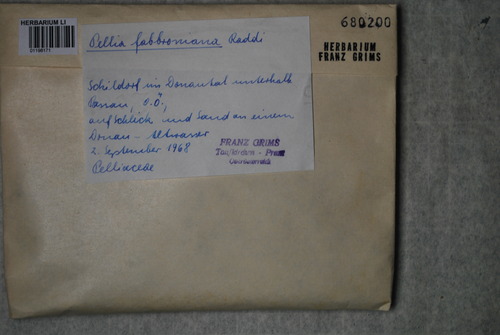 HERBARIUM LI
680200
HERBARIUM
FRANZ GRIMS
Pellia fabbroniana Raddi
Schildorf im Donautal unterhalb
Passau, O.Ö.,
auf Schlick und Sand an einem
Donau-Altwasser
2. September 1968
Pelliaceae
FRANZ GRIMS
Taufkirchen - Pram
Oberösterreich